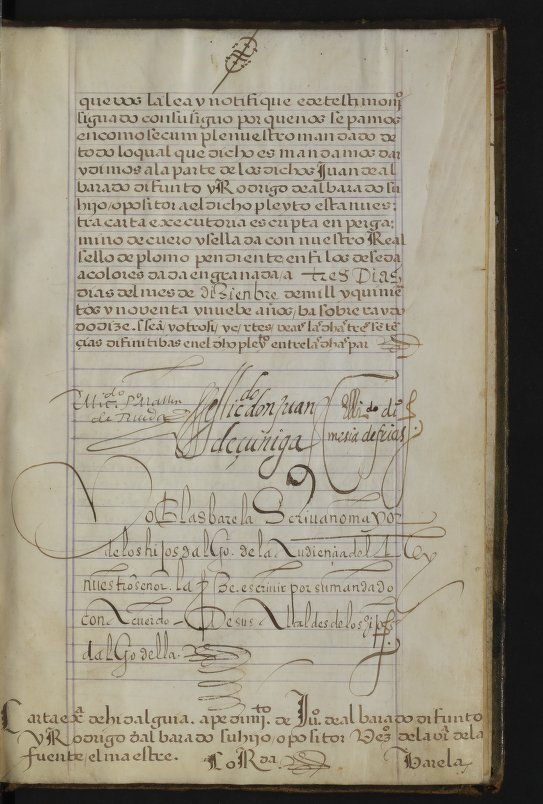 que vos la lea y notifique e de testimoni.º
signado con su signo por que nos sepamos
en como se cumple nuestro mandado de
todo lo qual que dicho es mandamos dar
y dimos a la parte de los dichos Juan de al
barado difunto y Rodrigo de albarado su
hijo/opositor a el dicho pleyto esta nues:
tra carta executoria escripta en perga:
mino de cuero y sellada con nuestro Real
sello de plomo pendiente en filos de seda
a colores dada en granada/a tres Dias,
dias del mes de dizienbre de mill y quinie
tos y noventa y nuebe años/ba sobre raydo
do dize
çias difinitibas en el dho pleyº entre la dha par
Sellº
de
licdº don Juan
de çuñiga
mesia de frias
Yo Blas barela Scrivano mayor
de los hijos dalGo. de la Audiençia del Rey
nuestro señor. la fize escrivir por su mandado
con Acuerdo — De sus Alcaldes de los hijos
dalGo della.
Carta exª de hidalguia. a pedimtº de Juº de albarado difunto
y Rodrigo d albarado su hijo/opositor Vezº de la vª de la
fuente, el maestre.
Barela,